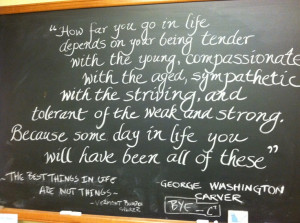 “How far you go in life
depends on your being tender
with the young, compassionate
with the aged, sympathetic
with the striving, and
tolerant of the weak and strong.
Because some day in life you
will have been all of these”
~THE BEST THINGS IN LIFE
ARE NOT THINGS~
GEORGE WASHINGTON
CARVER
BYE